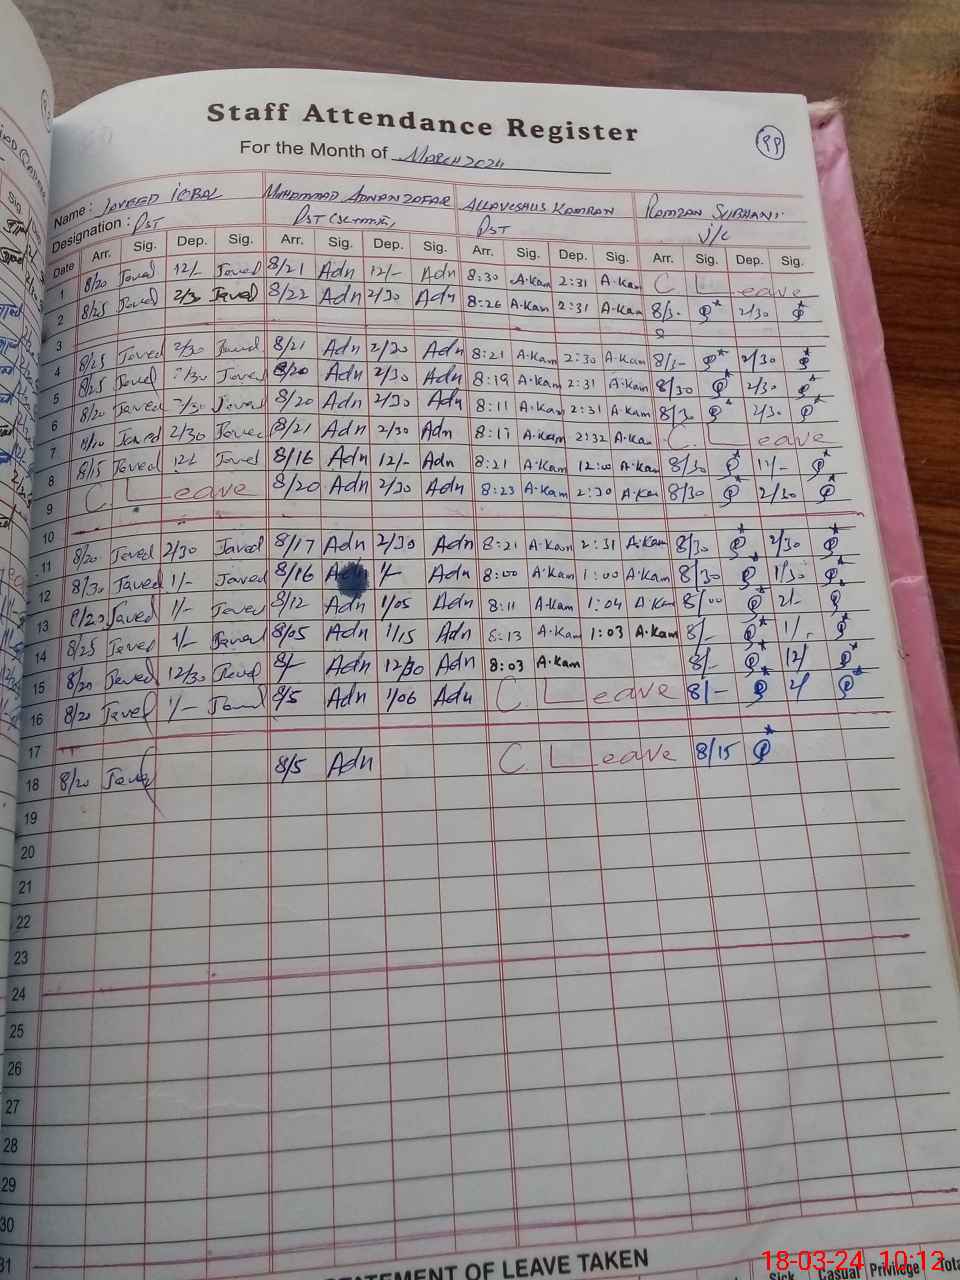 Staff Attendance Register
99
For the Month of March 2024
Name : Javeed iqbal Muhammad Adnan Zafar Allavushus Kamran Ramzan Subhani
Designation : PST PST PST J/C
Date Arr. Sig. Dep. Sig. Arr. Sig. Dep. Sig. Arr. Sig. Dep. Sig. Arr. Sig. Dep. Sig.
1 8/20 Javed 12/- Javed 8/21 Adn 12/- Adn 8:30 A.Kam 2:31 A.Kam C Leave
2 8/25 Javed 2/30 Javed 8/22 Adn 2/30 Adn 8:26 A.Kam 2:31 A.Kam 8/30 2/30
3
4 8/25 Javed 2/30 Javed 8/21 Adn 2/30 Adn 8:21 A.Kam 2:30 A.Kam 8/- 2/30
5 8/25 Javed 2/30 Javed 8/20 Adn 2/30 Adn 8:19 A.Kam 2:31 A.Kam 8/30 2/30
6 8/20 Javed 2/30 Javed 8/20 Adn 2/30 Adn 8:11 A.Kam 2:31 A.Kam 8/30 2/30
7 8/20 Javed 2/30 Javed 8/21 Adn 2/30 Adn 8:17 A.Kam 2:32 A.Kam C. Leave
8 8/15 Javed Javed 8/16 Adn 12/- Adn 8:21 A.Kam 12:00 A.Kam 8/30
9 C Leave 8/20 Adn 2/30 Adn 8:23 A.Kam 2:30 A.Kam 8/30 2/30
10
11 8/20 Javed 2/30 Javed 8/17 Adn 2/30 Adn 8:21 A.Kam 2:31 A.Kam 8/30 2/30
12 8/30 Javed 1/- Javed 8/16 Adn 1/- Adn 8:00 A.Kam 1:00 A.Kam 8/30 1/30
13 8/20 Javed 1/- Javed 8/12 Adn 1/05 Adn 8:11 A.Kam 1:04 A Kam 8/00 2/-
14 8/25 Javed 1/- Javed 8/05 Adn 1/15 Adn 8:13 A.Kam 1:03 A.Kam 8/- 1/-
15 8/20 Javed 12/30 Javed 8/- Adn 12/30 Adn 8:03 A.Kam 8/- 12/
16 8/20 Javed 1/- Javed 8/5 Adn 1/06 Adn C Leave 8/-
17
18 8/20 Javed 8/5 Adn C. Leave 8/15
19
20
21
22
23
24
25
26
27
28
29
30
31
STATEMENT OF LEAVE TAKEN
Sick Casual Privilege Tota
18-03-24 10:12